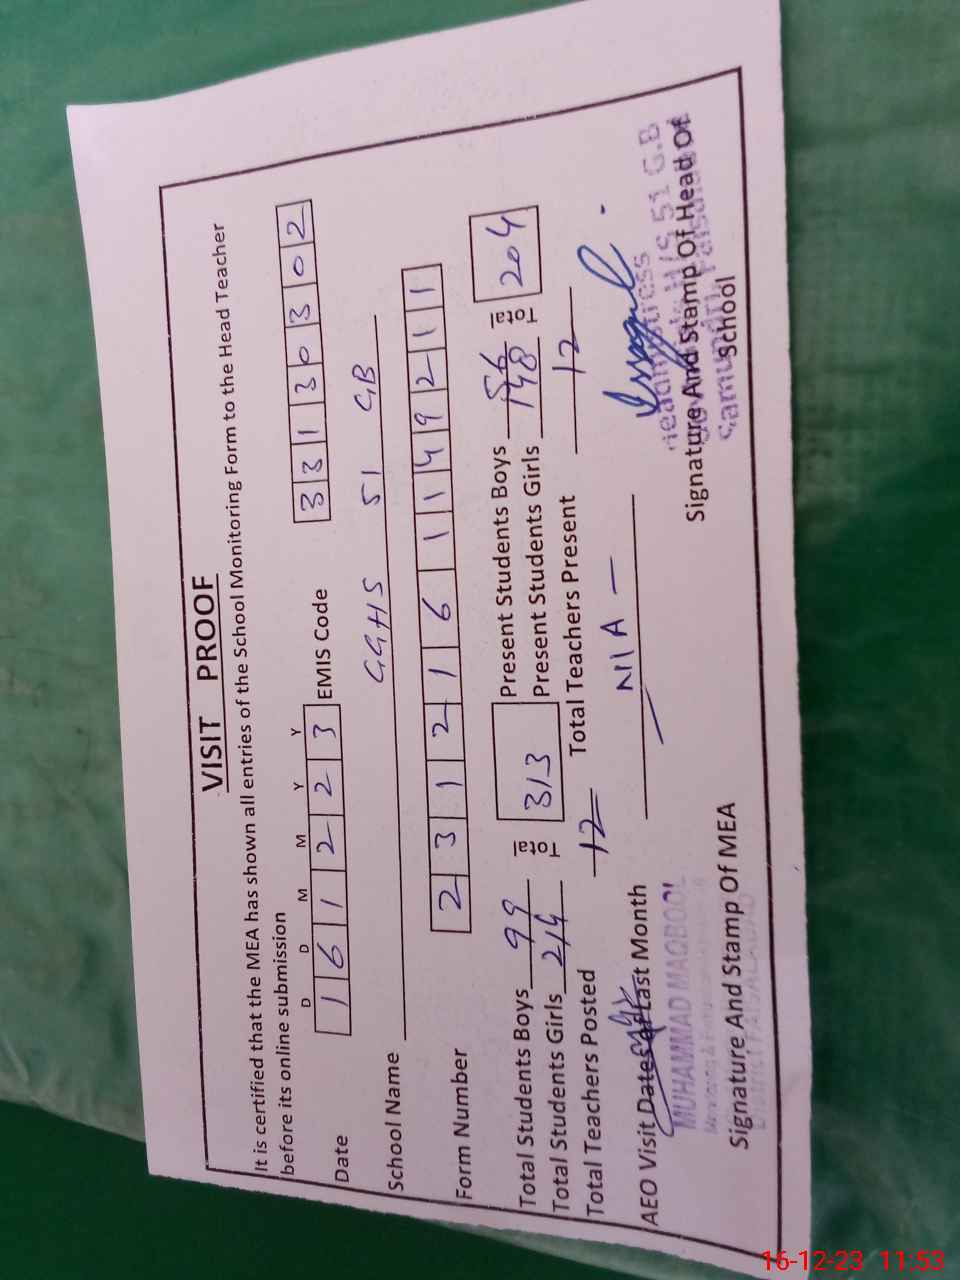 VISIT PROOF
It is certified that the MEA has shown all entries of the School Monitoring Form to the Head Teacher
before its online submission
D D M M Y Y
Date 1 6 1 2 2 3 EMIS Code 3 3 1 3 0 3 0 2
School Name GGHS 51 GB
Form Number 2 3 1 2 1 6 1 1 4 9 2 1 1
Total Students Boys 99 Total 313 Present Students Boys 56 Total 204
Total Students Girls 214 Present Students Girls 148
Total Teachers Posted 12 Total Teachers Present 12
AEO Visit Dates of Last Month N/A
MUHAMMAD MAQBOOL
Headmistress
H/S 51 G.B
Signature And Stamp Of MEA Signature And Stamp Of Head Of
School
DISTRICT FAISALABAD
Samundri, Faisalabad
16-12-23 11:53